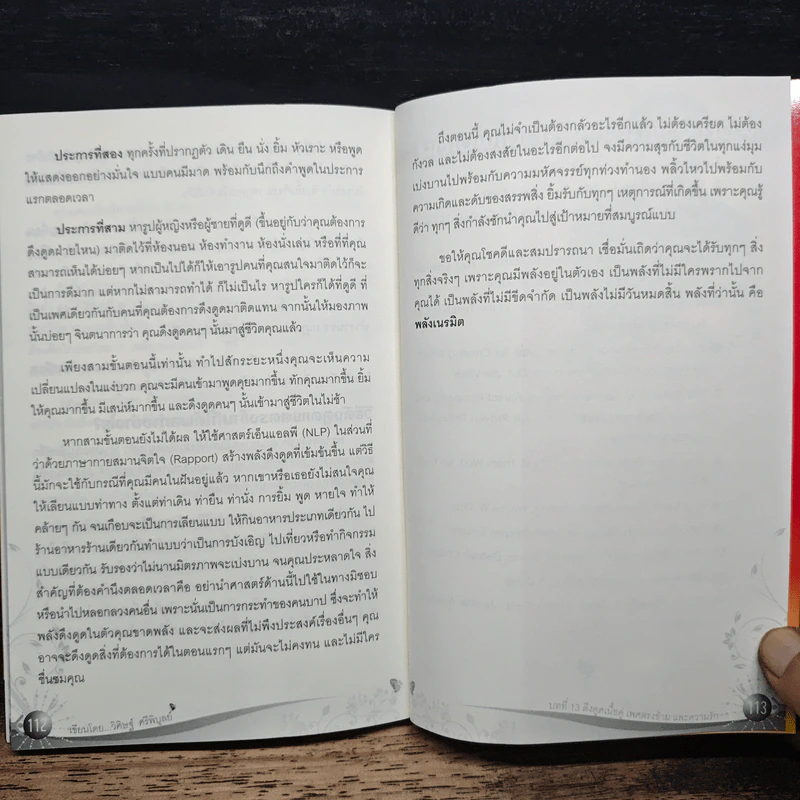 ประการที่สอง ทุกครั้งที่ปรากฏตัว เดิน ยืน นั่ง ยิ้ม หัวเราะ หรือพูด
ให้แสดงออกอย่างมั่นใจ แบบคนมีมาด พร้อมกับนึกถึงคำพูดในประการ
แรกตลอดเวลา
ประการที่สาม หารูปผู้หญิงหรือผู้ชายที่ดูดี (ขึ้นอยู่กับว่าคุณต้องการ
ดึงดูดฝ่ายไหน) มาติดไว้ที่ห้องนอน ห้องทำงาน ห้องนั่งเล่น หรือที่ที่คุณ
สามารถเห็นได้บ่อยๆ หากเป็นไปได้ก็ให้เอารูปคนที่คุณสนใจมาติดไว้ก็จะ
เป็นการดีมาก แต่ถ้าหากไม่สามารถทำได้ ก็ไม่เป็นไร หารูปใครก็ได้ที่ดูดี ที่
เป็นเพศเดียวกันกับคนที่คุณต้องการดึงดูดมาติดแทน จากนั้นให้มองภาพ
นั้นบ่อยๆ จินตนาการว่า คุณดึงดูดคนๆ นั้นมาสู่ชีวิตคุณแล้ว
เพียงสามขั้นตอนนี้เท่านั้น ทำไปสักระยะหนึ่งคุณจะเห็นความ
เปลี่ยนแปลงในแง่บวก คุณจะมีคนเข้ามาพูดคุยมากขึ้น ทักคุณมากขึ้น ยิ้ม
ให้คุณมากขึ้น มีเสน่ห์มากขึ้น และดึงดูดคนๆ นั้นเข้ามาสู่ชีวิตในไม่ช้า
หากสามขั้นตอนยังไม่ได้ผล ให้ใช้ศาสตร์เอ็นแอลพี (NLP) ในส่วนที่
ว่าด้วยภาษากายสมานจิตใจ (Rapport) สร้างพลังดึงดูดที่เข้มข้นขึ้น แต่วิธี
นี้มักจะใช้กับกรณีที่คุณมีคนในฝันอยู่แล้ว หากเขาหรือเธอยังไม่สนใจคุณ
ให้เลียนแบบท่าทาง ตั้งแต่ท่าเดิน ท่ายืน ท่านั่ง การยิ้ม พูด หายใจ ทำให้
คล้ายๆ กัน จนเกือบจะเป็นการเลียนแบบ ให้กินอาหารประเภทเดียวกัน ไป
ร้านอาหารร้านเดียวกันทำแบบว่าเป็นการบังเอิญ ไปเที่ยวหรือทำกิจกรรม
แบบเดียวกัน รับรองว่าไม่นานมิตรภาพจะเบ่งบาน จนคุณประหลาดใจ สิ่ง
สำคัญที่ต้องคำนึงตลอดเวลาคือ อย่านำศาสตร์ด้านนี้ไปใช้ในทางมิชอบ
หรือนำไปหลอกลวงคนอื่น เพราะนั่นเป็นการกระทำของคนบาป ซึ่งจะทำให้
พลังดึงดูดในตัวคุณขาดพลัง และจะส่งผลที่ไม่พึงประสงค์เรื่องอื่นๆ คุณ
อาจจะดึงดูดสิ่งที่ต้องการได้ในตอนแรกๆ แต่มันจะไม่คงทน และไม่มีใคร
ชื่นชมคุณ
112
เขียนโดย วิศิษฐ์ ศรีพิบูลย์
ถึงตอนนี้ คุณไม่จำเป็นต้องกลัวอะไรอีกแล้ว ไม่ต้องเครียด ไม่ต้อง
กังวล และไม่ต้องสงสัยในอะไรอีกต่อไป จงมีความสุขกับชีวิตในทุกแง่มุม
เบ่งบานไปพร้อมกับความมหัศจรรย์ทุกท่วงทำนอง พลิ้วไหวไปพร้อมกับ
ความเกิดและดับของสรรพสิ่ง ยิ้มรับกับทุกๆ เหตุการณ์ที่เกิดขึ้น เพราะคุณรู้
ดีว่า ทุกๆ สิ่งกำลังชักนำคุณไปสู่เป้าหมายที่สมบูรณ์แบบ
ขอให้คุณโชคดีและสมปรารถนา เชื่อมั่นเถิดว่าคุณจะได้รับทุกๆ สิ่ง
ทุกสิ่งจริงๆ เพราะคุณมีพลังอยู่ในตัวเอง เป็นพลังที่ไม่มีใครพรากไปจาก
คุณได้ เป็นพลังที่ไม่มีขีดจำกัด เป็นพลังไม่มีวันหมดสิ้น พลังที่ว่านั้น คือ
พลังเนรมิต
บทที่ 13 ดึงดูดเนื้อคู่ เพศตรงข้าม และความรัก
113